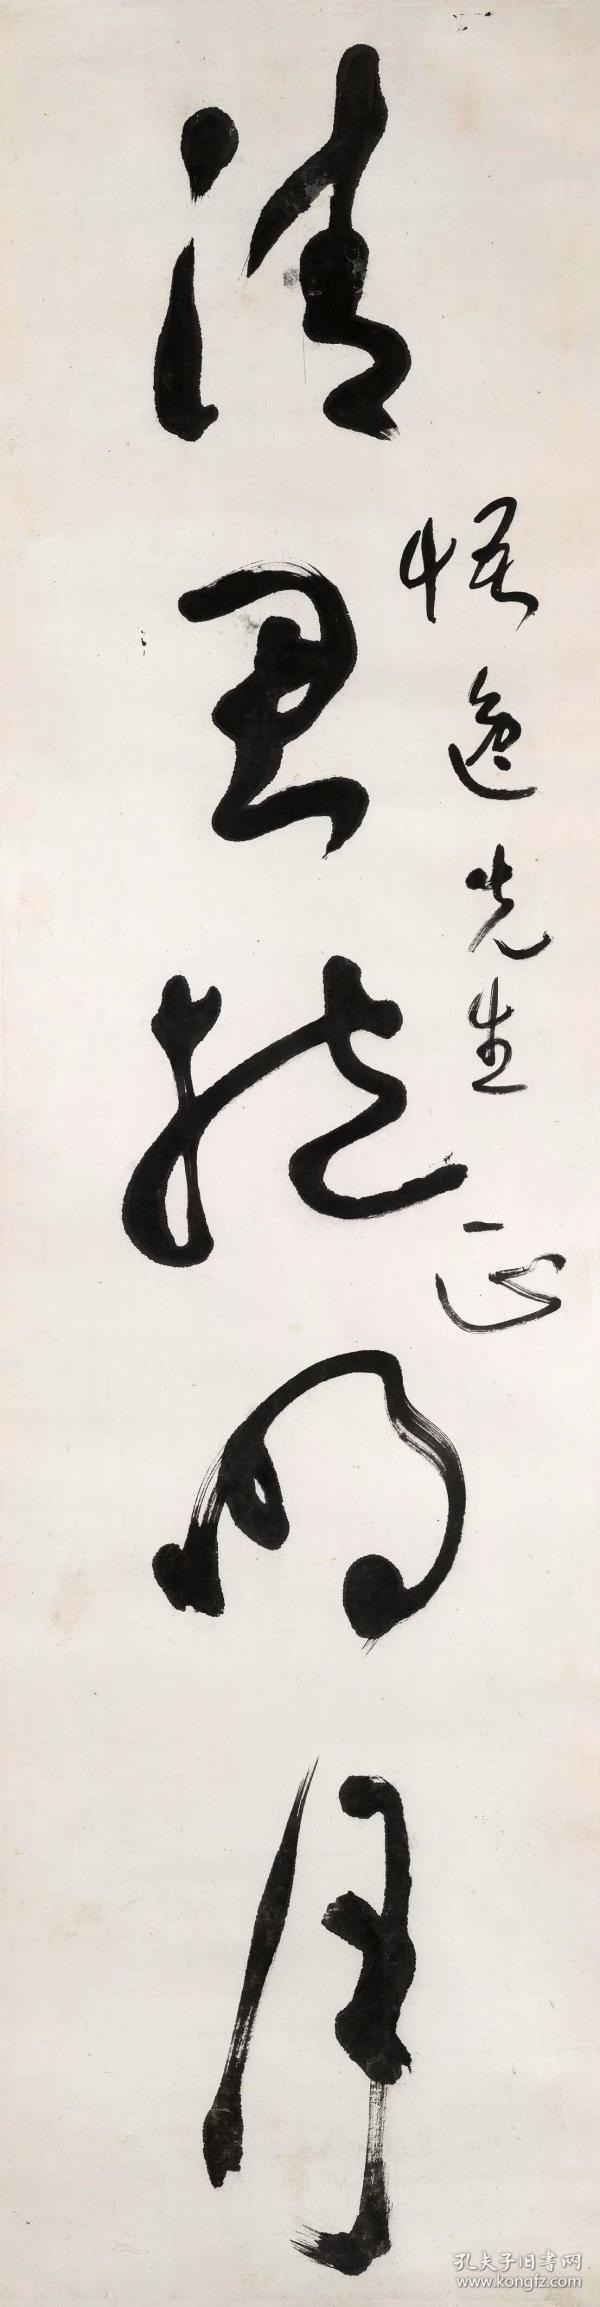 悟逸先生正
清思於明月
孔夫子旧书网
www.kongfz.com